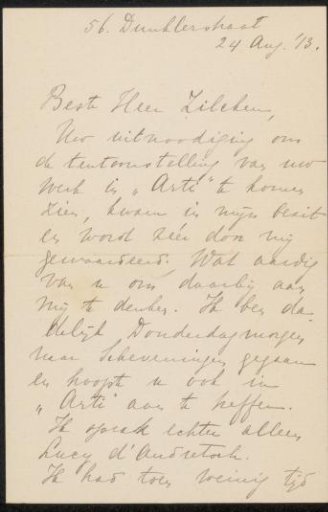 56. Dunklerstraat
24 Aug. '13.
Beste Heer Zilcken,
Uw uitnoodiging om
de tentoonstelling van uw
werk in „Arti" te komen
zien, kwam in mijn bezit
en word zéér door mij
gewaardeerd; Wat aardig
van u om daarbij aan
mij te denken. Ik ben da
delijk Donderdagmorgen
naar Scheveningen gegaan
en hoopte u ook in
„Arti" aan te treffen.
Ik sprak echter alleen
Lucy d'Audretsch.
Ik had toen weinig tijd